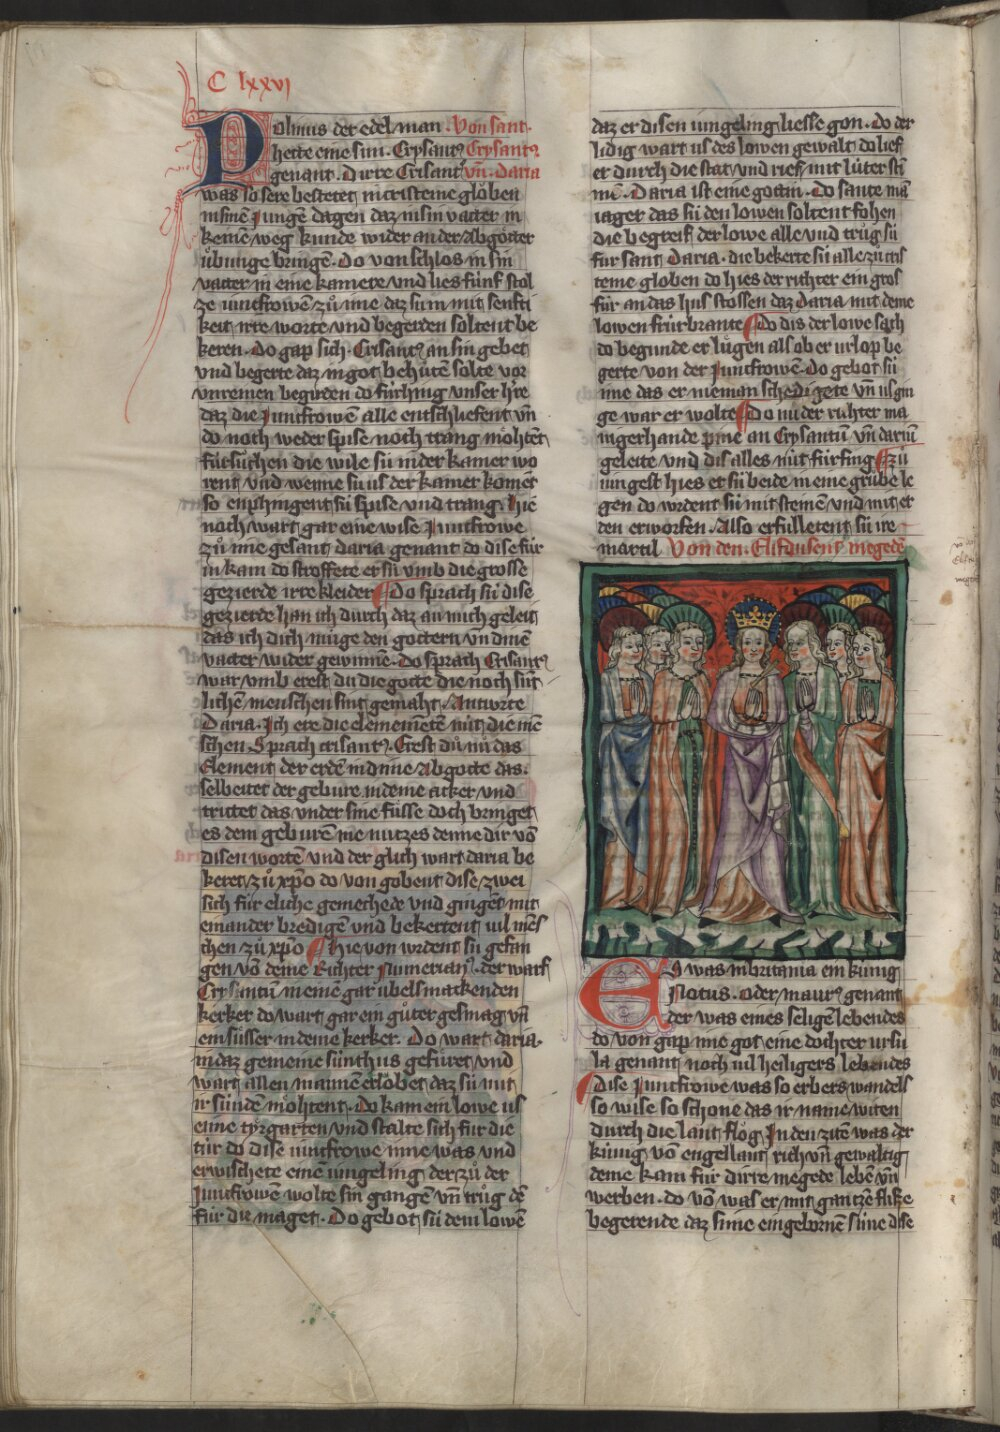 C lxxvi
Polimus der edel man · Von sant ·
hette eine sun · Crysantꝰ Crysantꝰ
genant · Dirre Crisantꝰ vn̄ · daria
was so sere bestetet in cristeme glöben
in sinē jungē dagen daz in sin vatter in
keinē weg kunde wider an der Abgötter
übunge bringē · Do von schlos in sin
vatter in eine kamere vnd lies fünf stol
ze iuncfrowē zuͦ ime daz sú in mit senfti
keit irre worte vnd begerden soltent be
keren · Do gap sich · Crisantꝰ an sin gebet
vnd begerte daz in got behüte solte vor
unreinen begirden do fúrhing vnser h're
daz die Juncfrowē alle entschliefent vn̄
do noch weder spise noch trang möhtēt
fúrsuͦchen die wile sú in der kamer wo
rent vnd wenne sú us der kamer koment
so enphingent sú spise vnd trang · Hie
noch wart gar eine wise Juncfrowe
zuͦ ime gesant daria genant do dise fúr
in kam do stroffete er sú vmb die grosse
gezierde irre kleider Do sprach sú dise
gezierde han ich durch daz an mich geleit
das ich dich múge den göttern vn̄ dinē
vatter wider gewinnē · Do sprach Crisantꝰ
war vmb erest du die götte die noch sünt
lichē menschen sint gemaht · Antwrte
Daria · Ich ere die elementē nút die mē
schen · Sprach crisantꝰ · Erest dú nú das
Element der erdē in dinne Abgötte das ·
selbe itet der gebure in deme acker vnd
trittet das vnder sine fússe doch bringet
es dem geburē me nutzes denne dir vō
disen wortē vnd der glich wart daria be
keret zuͦ xp̄o do von gobent dise zwei
sich fúr eliche gemechede vnd gingēt mit
einander bredigē vnd bekertent vil mēs
chen zuͦ xp̄o Hie von wrdent sú gefan
gen vō deme Richter Numerianꝰ · der warf
Crysantū in einē gar úbelsmackenden
kerker do wart gar ein guͦter gesmag vn̄
ein süsser in deme kerker · Do wart daria ·
in daz gemeine súnthus gefüret vnd
wart allen mannē erlöbet daz sú mit
ir súndē möhtent · Do kam ein löwe us
eime tyrgarten vnd stalte sich fúr die
túr do dise iuncfrowe inne was vnd
erwischete einē iungeling der zuͦ der
Juncfrowen wolte sin gangē vn̄ truͦg dē
fúr die maget · Do gebot sú dem lowē
daz er disen iungeling liesse gon · do der
lidig wart us des lowen gewalt do lief
er durch die stat vnd rief mit lúter stī
me · Daria ist eine göttin · Do sante mā
iager das sú den lowen soltent fohen
die begreif der lowe alle vnd truͦg sú
fúr sant Daria · die bekerte sú alle zuͦ cris
teme globen do hies der rihter ein gros
fúr an das hus stossen daz daria mit deme
lowen fúrbrante Do dis der lowe sach
do begunde er lügen alsob er urlop be
gerte von der Juncfrowē · Do gebot sú
ime das er nieman schedigete vn̄ us gin
ge war er wolte Do nú der rihter ma
nigerhande pine an Crysantū vn̄ dariā
geleite vnd dis alles nút fúrfing Zuͦ
iungest hies er sú beide in eine gruͦbe le
gen do wrdent sú mit steinen vnd mit er
den erworfen · Also erfulletent sú ire
martil Von den · Eilfdusent megedē
Es was in britania ein kúnig
Notus · oder maurꝰ genant
der was eines seligē lebendes
do von gap ime got eine dochter ursu
la genant noch vil heiligers lebendes
Dise Juncfrowe was so erbers wandels
so wise so schone das ir name witen
durch die lant flög In den zitē was der
kúnig vō engellant rich vn̄ gewaltig
deme kam fúr dirre megede lebē vn̄
werben · do vō was er mit gantzē flisze
begerende daz sime eingebornē súne dise